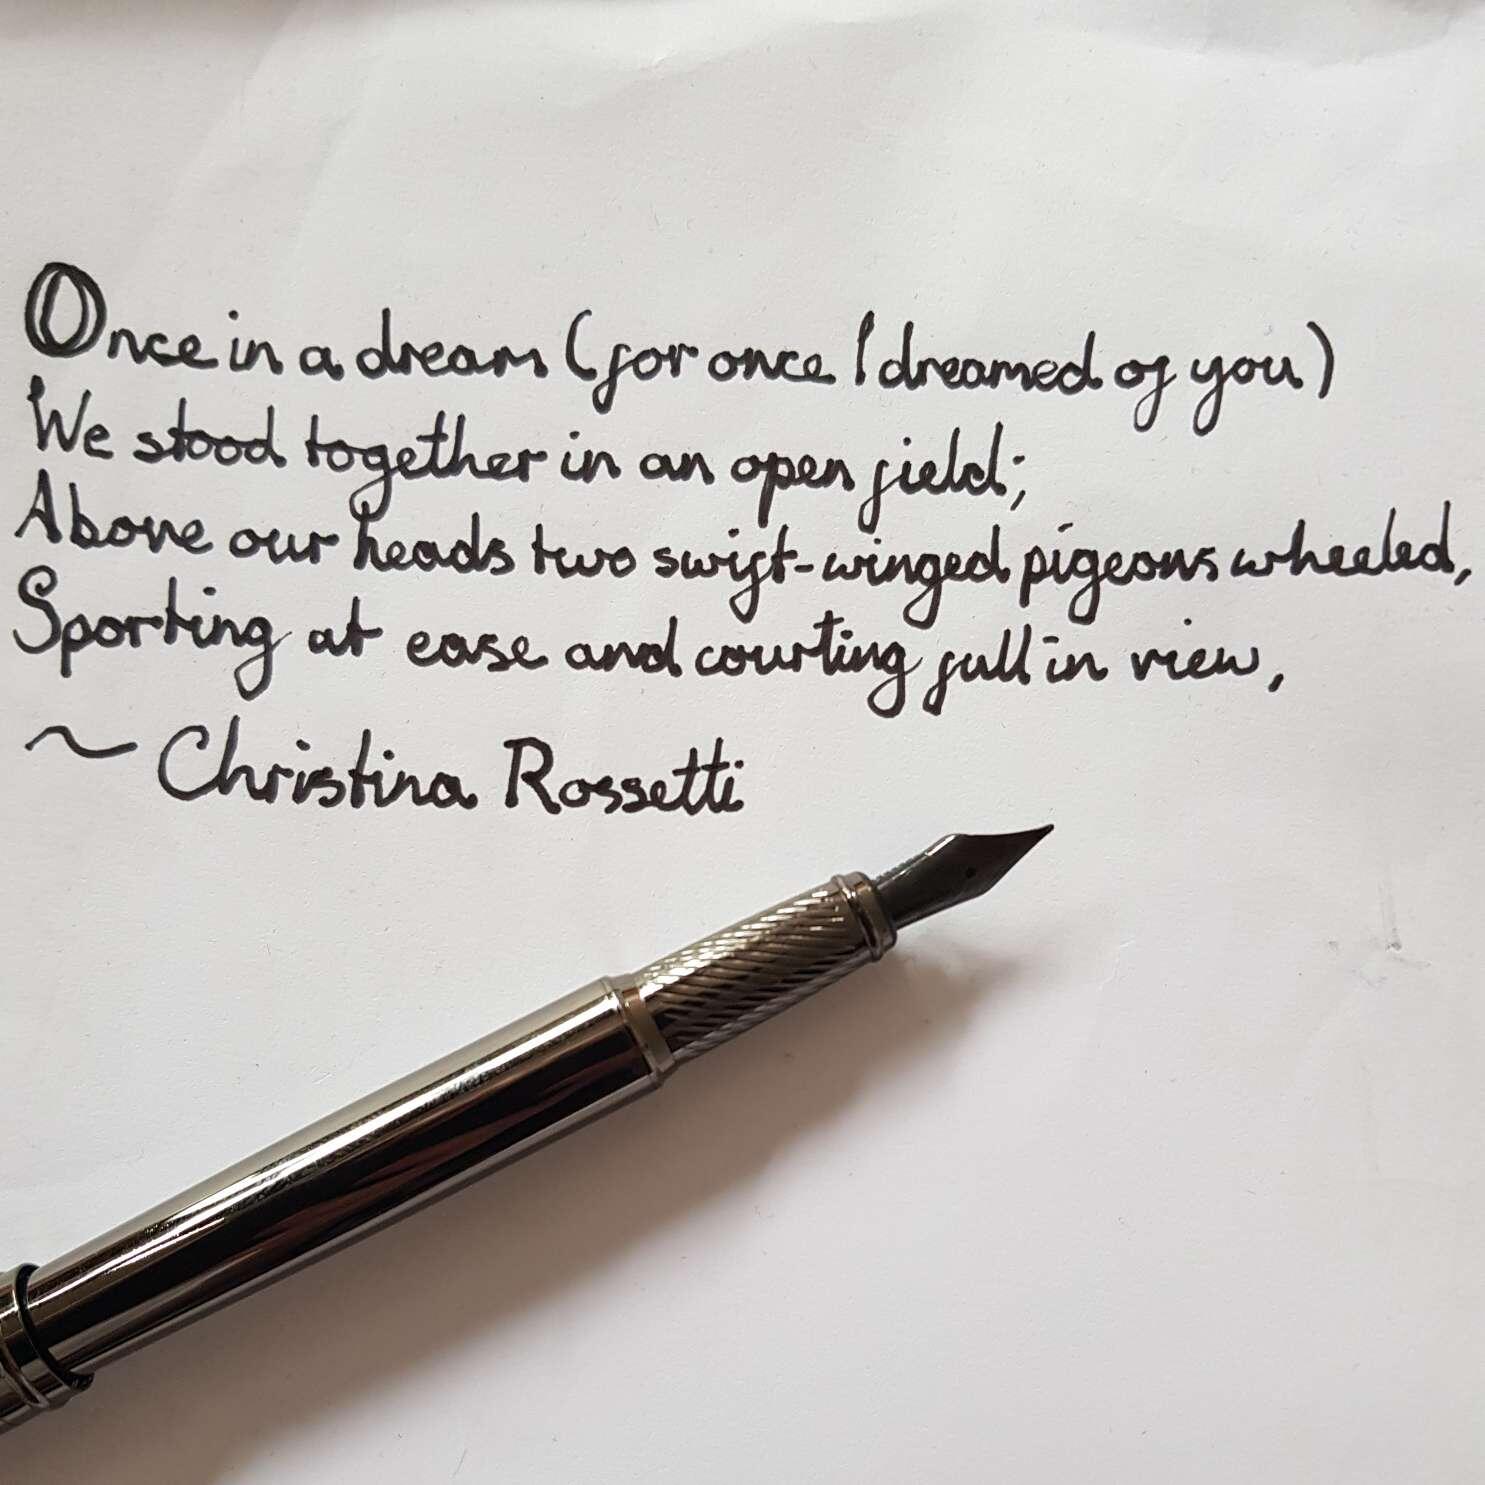 Once in a dream (for once I dreamed of you)
We stood together in an open field;
Above our heads two swift-winged pigeons wheeled,
Sporting at ease and courting full in view,
~ Christina Rossetti